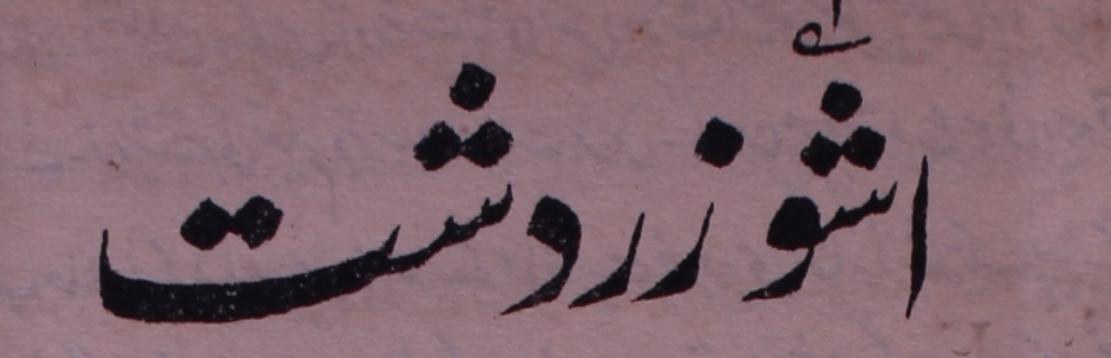 اشو زردشت